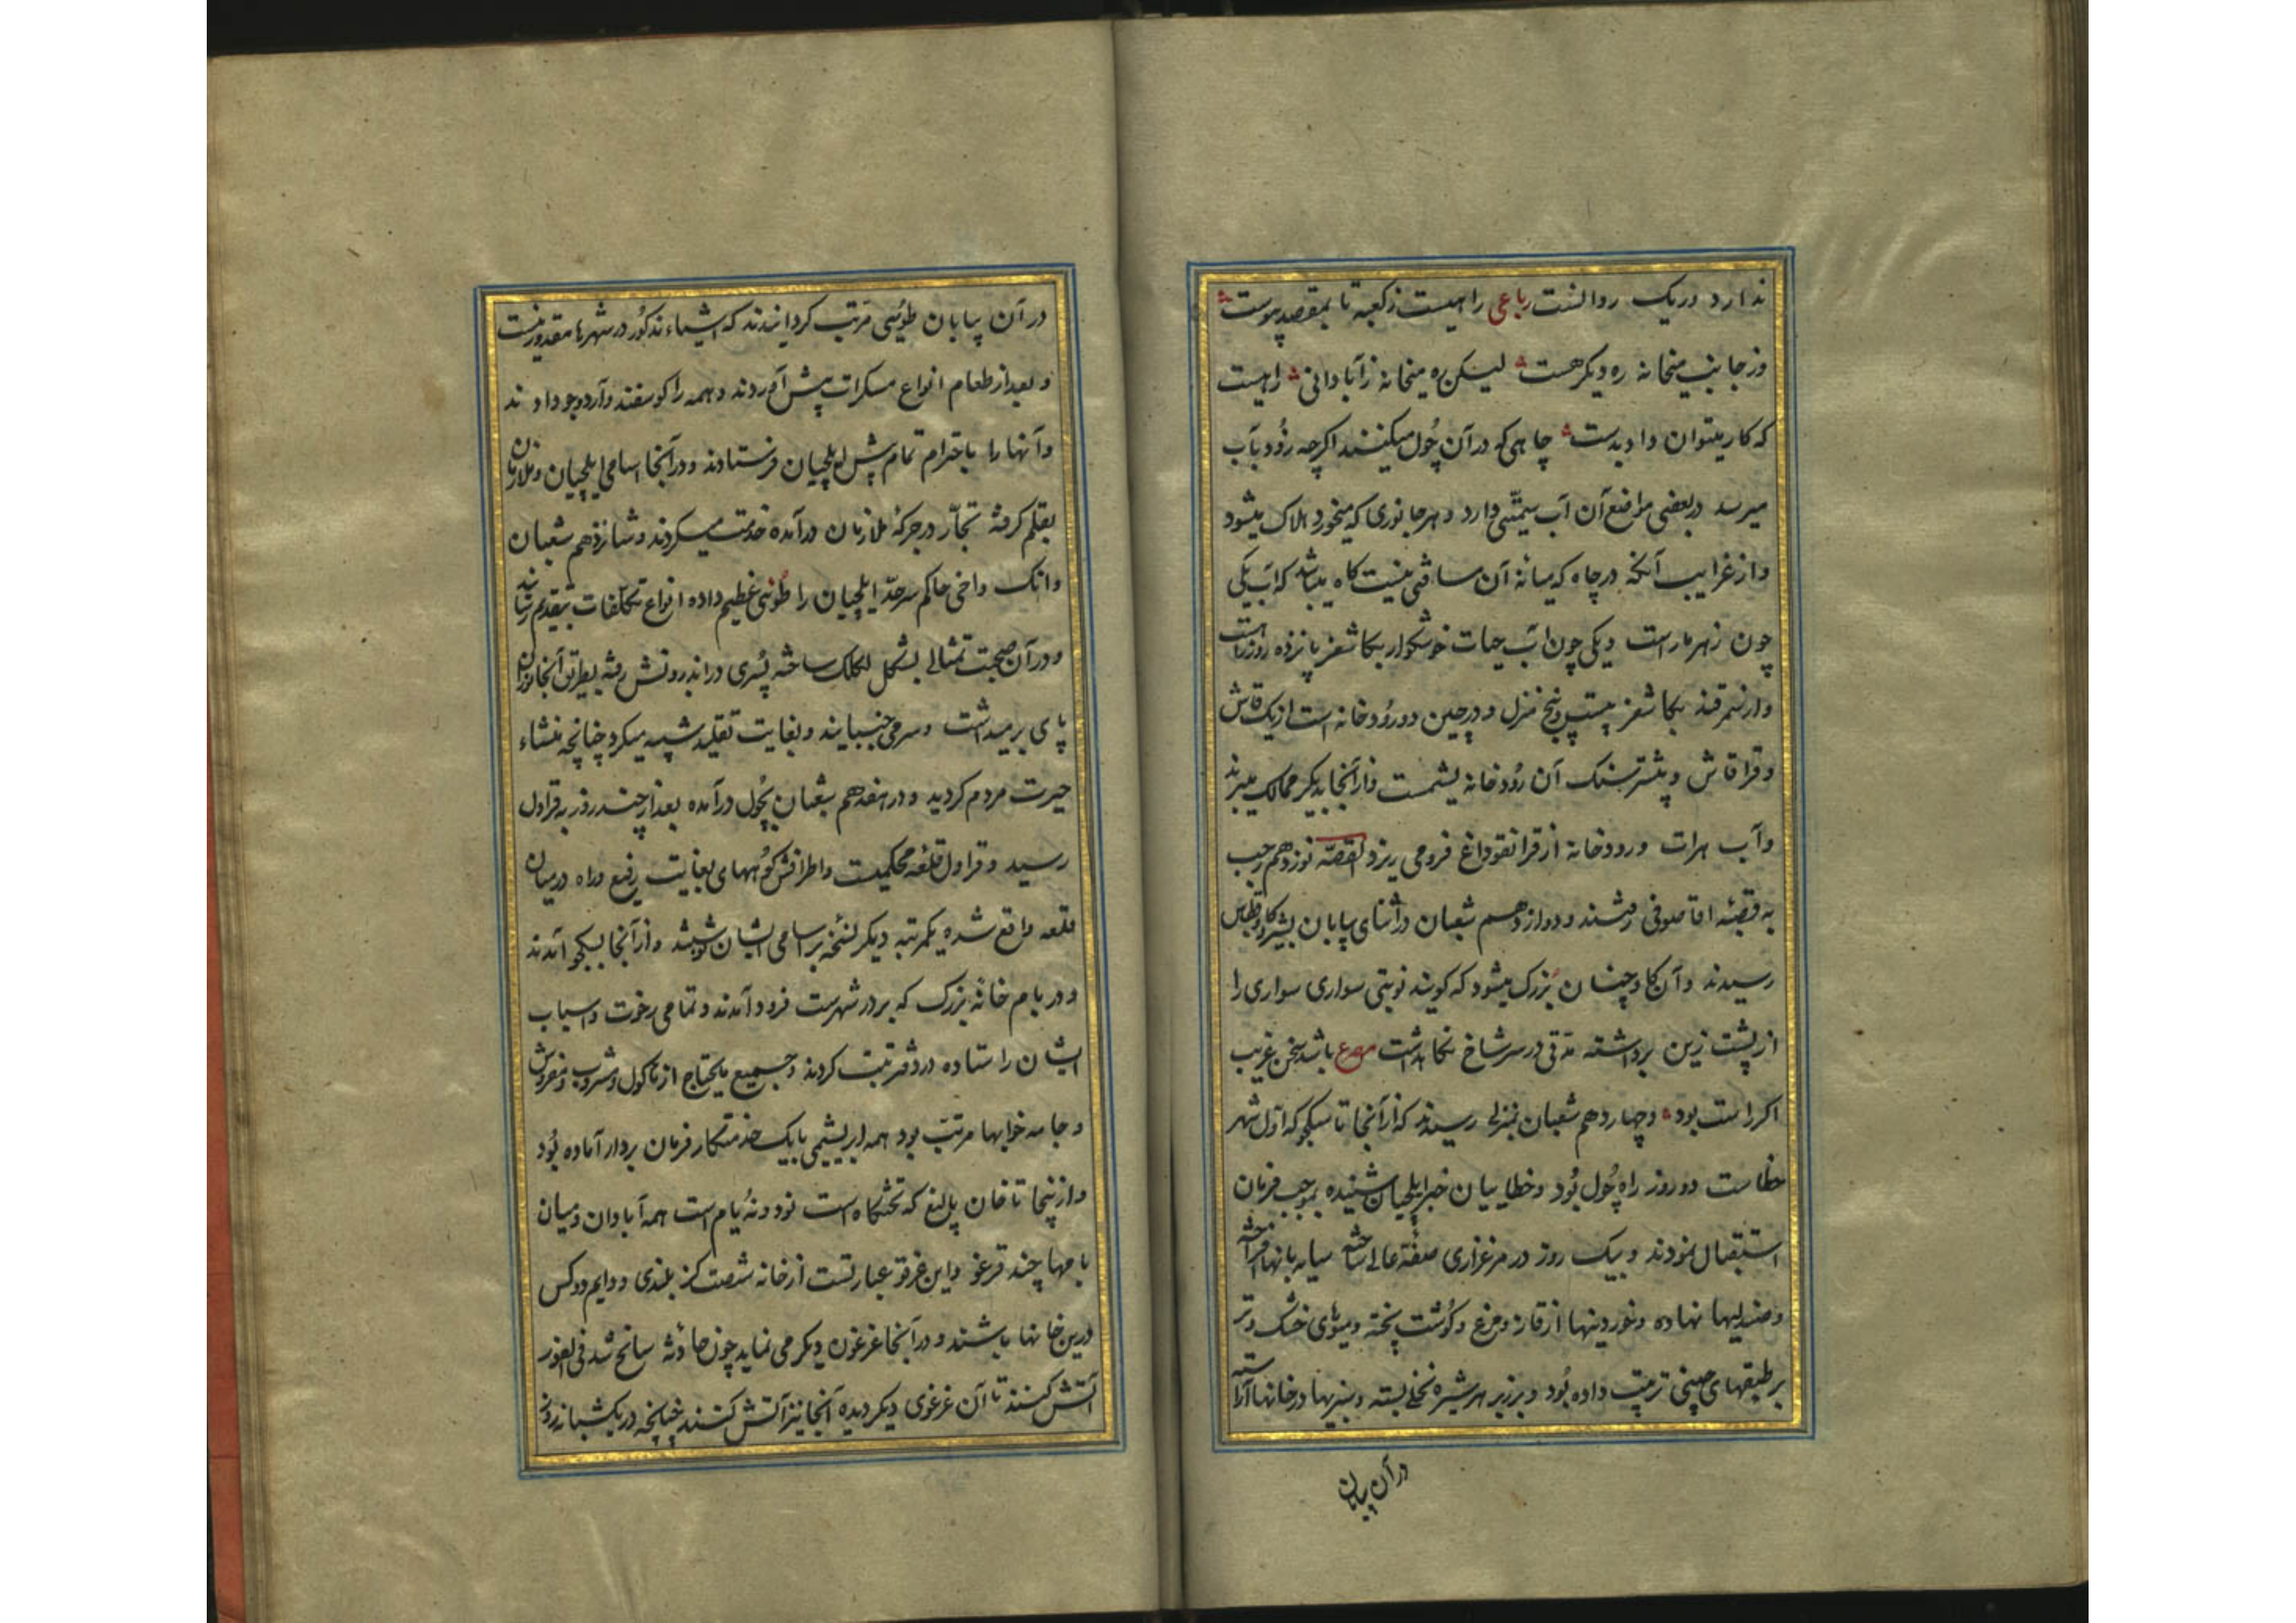 ندارد در یک روانست رباعی راهیست ز کعبه تا بمقصد پیوست
وز جانب میخانه ره دیکر هست لیکن ره میخانه ز آبادانی راهیست
که کار میتوان داد بدست چاهی که در آن چُول میکنند اکرچه زُود بآب
میرسد در بعضی مواضع آن آب سمّیّتی دارد و هر جانوری که میخورد هلاک میشود
و از غرایب آنکه در چاه که میانهٔ آن مسافتی نیست کاه میباشد که آب یکی
چون زهر مار است و یکی چون آب حیات خوشکوار بکاشغر پانزده روز راهست
و از سمرقند بکاشغر بیست و پنج منزل و در چین دو رُودخانه است از یک قاش
و قرا قاش و بیشتر سنک آن رُودخانه یشمست و از آنجا بدیکر ممالک میبرند
و آب هرات و رودخانه از قرانقوداغ فرو می ریزد القصّه نوزدهم رجب
به قصبهٔ اقا صوفی رفتند و دوازدهم شعبان در اثنای بیابان بشیر کاو قطاس
رسیدند و آن کاو چنان بزرک میشود که کویند نوبتی سواری سواری را
از پشت زین برداشته مدّتی در سر شاخ نکاهداشت مصرع باشد سخن غریب
اکر راست بود و چهاردهم شعبان بمنزلی رسیدند که از آنجا تا سکجو که اوّل شهر
خطاست دو روز راه چُول بُود و خطاییان خبر ایلچیان شنیده بموجب فرمان
استقبال نمودند و بیک روز در مرغزاری صفّهٔ عالی ساخته سایه بانها افراخته
و صندلیها نهاده و خوردینها از قاز و مرغ و کوُشت پخته و میوهای خشک و تر
بر طبقهای چینی ترتیب داده بُود و بر زیر هر شیره نخلی بسته و سبزیها در خانها آراسته
در آن بیابان
در آن بیابان طُوئی مرتب کردانیدند که اشیاء مذکُور در شهرها مقدور نیست
و بعد از طعام انواع مسکرات پیش آوردند و همه را کوسفند و آرد و جو دادند
و آنها را باحترام تمام پیش ایلچیان فرستادند و در آنجا اسامی ایلچیان و ملازمان
بقلم کرفته تجّار در جرکهٔ ملازمان درآمده خدمت میکردند و شانزدهم شعبان
وانک داخی حاکم سرحدّ ایلچیان را طُوئی عظیم داده انواع تکلّفات بتقدیم رسانید
و در آن صحبت تمثالی بشکل لکلک ساخته پسُری در اندرونش رفته بطریق آنجانوران
پای بر میداشت و سر می جنبانید و بغایت تقلید شبیه میکرد چنانچه منشاء
حیرت مردم کردید و در هفدهم شعبان بچُول درآمده بعد از چند روز به قراول
رسید و قراول قلعه محکمیست و اطرافش کوُههای بغایت رفیع و راه در میان
قلعه واقع شده یکمرتبه دیکر نسخه بر اسامی ایشان نوشتند و از آنجا بسکجو آمدند
و در یام خانهٔ بزرک که بر در شهرست فرود آمدند و تمامی رخوت و اسباب
ایشان را ستاده در دفتر ثبت کردند و جمیع مایحتاج از ماکول و مشروب و مفروش
و جامه خوابها مرتب بود همه ابریشمی با یک خدمتکار فرمان بردار آماده بُود
و از ینجا تا خان بالیغ که تختکاه است نود و نُه یام است همه آبادان و میان
یامها چند قرغو و این غرقو عبارتست از خانه شصت کز بلندی و دایم دو کس
درین خانها باشند و در آنجا غرغون دیکر می نماید چون حادثه سانح شد فی الفور
آتش کنند تا آن غرغوی دیکر دیده آنجا نیز آتش کنند چنانچه در یکشبانه روز